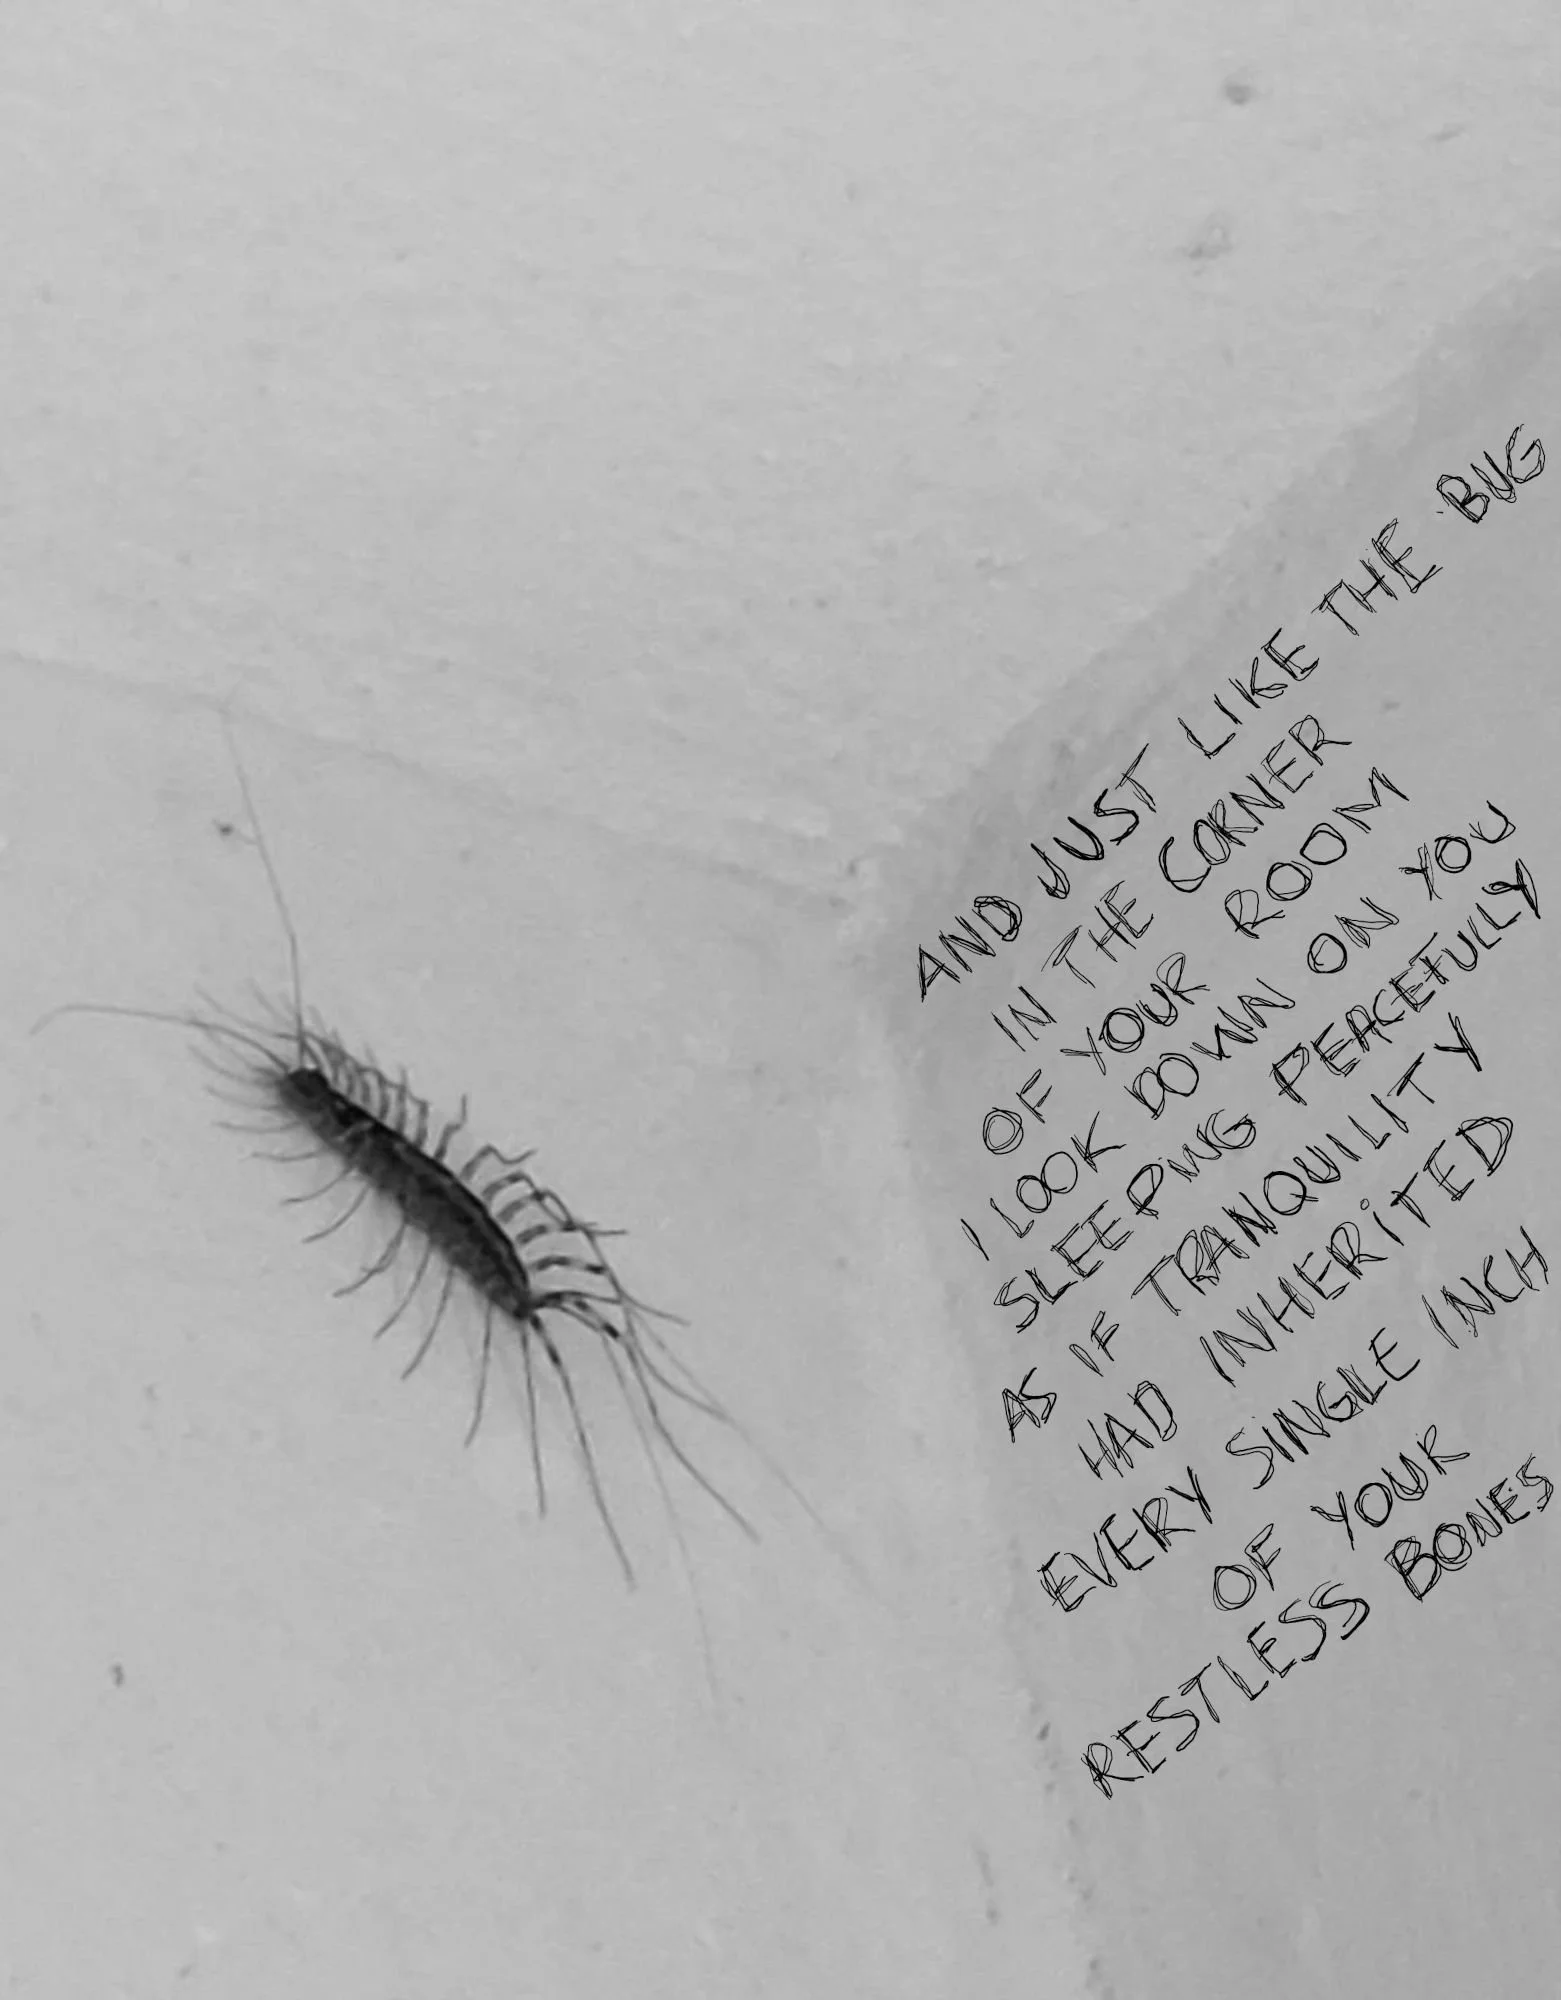 AND JUST LIKE THE BUG
IN THE CORNER
OF YOUR ROOM
I LOOK DOWN ON YOU
SLEEPING PEACEFULLY
AS IF TRANQUILITY
HAD INHERITED
EVERY SINGLE INCH
OF YOUR
RESTLESS BONES